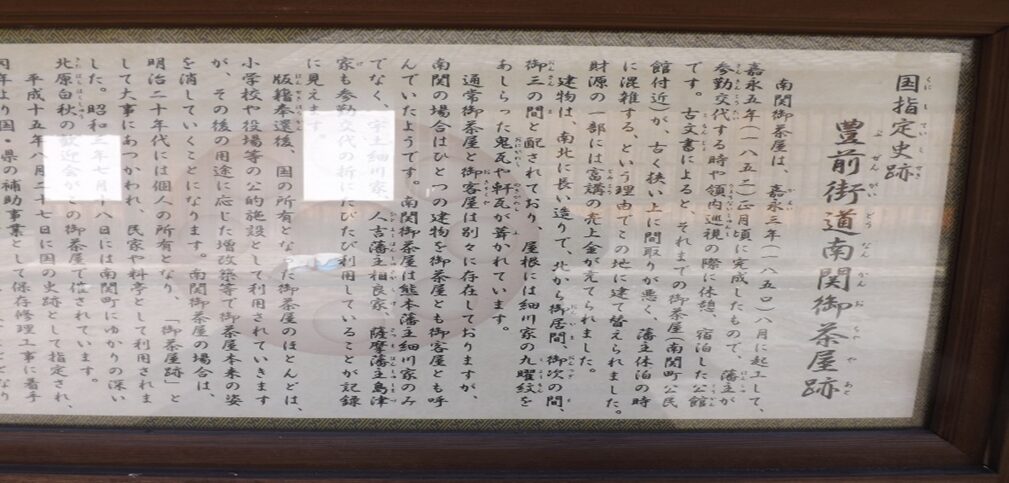 国指定史跡
豊前街道南関御茶屋跡
南関御茶屋は、嘉永三年(一八五〇)八月に起工して、
嘉永五年(一八五二)正月頃に完成したもので、藩主が
参勤交代する時や領内巡視の際に休憩、宿泊した公館
です。古文書によると、それまでの御茶屋(南関町公民
館付近)が、古く狭い上に間取りが悪く、藩主休泊の時
に混雑する、という理由でこの地に建て替えられました。
財源の一部には富講の売上金が充てられました。
建物は、南北に長い造りで、北から御居間、御次の間、
御三の間と配されており、屋根には細川家の九曜紋を
あしらった鬼瓦や軒瓦が葺かれています。
通常御茶屋と御客屋は別々に存在しておりますが、
南関の場合はひとつの建物を御茶屋とも御客屋とも呼
んでいたようです。南関御茶屋は熊本藩主細川家のみ
でなく、宇土細川家、人吉藩主相良家、薩摩藩主島津
家も参勤交代の折にたびたび利用していることが記録
に見えます。
版籍奉還後、国の所有となった御茶屋のほとんどは、
小学校や役場等の公的施設として利用されていきます
が、その後の用途に応じた増改築等で御茶屋本来の姿
を消していくことになります。南関御茶屋の場合は、
明治二十年代には個人の所有となり、「御茶屋跡」と
して大事にあつかわれ、民家や料亭として利用されま
した。昭和三年七月 十八日には南関町にゆかりの深い
北原白秋の歓迎会がこの御茶屋で催されています。
平成十五年八月二十七日に国の史跡として指定され、
同年より国・県の補助事業として保存修理工事に着手